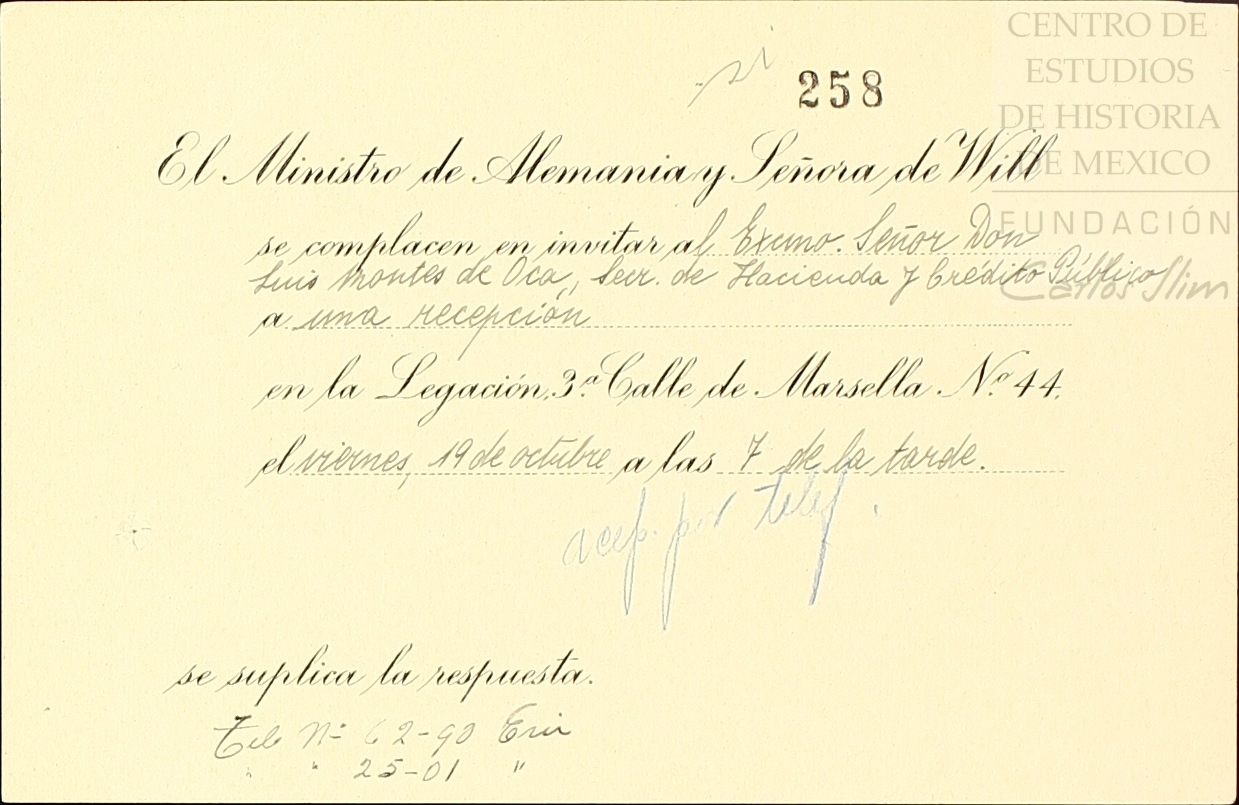 CENTRO DE
ESTUDIOS
DE HISTORIA
DE MEXICO
FUNDACIÓN
Carlos Slim
si
258
El Ministro de Alemania y Señora de Will
se complacen en invitar al Excmo. Señor Don
Luis Montes de Oca, Secr. de Hacienda y Crédito Público
a una recepción
en la Legación, 3.ª Calle de Marsella No. 44.
el viernes, 19 de octubre a las 7 de la tarde.
acep. por telef.
se suplica la respuesta.
Tele Nº 62-90 Eric
" " 25-01 "